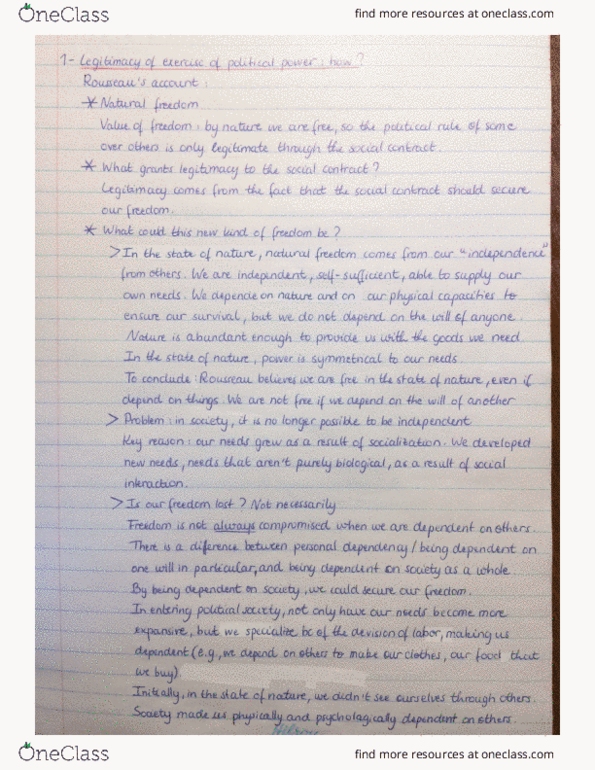 OneClass
find more resources at oneclass.com
1- Legitimacy of exercise of political power : how ?
Rousseau's account :
* Natural freedom
Value of freedom : by nature we are free, so the political rule of some
over others is only legitimate through the social contract.
* What grants legitimacy to the social contract ?
Legitimacy comes from the fact that the social contract should secure
our freedom.
* What could this new kind of freedom be ?
> In the state of nature, natural freedom comes from our "independence"
from others. We are independent, self-sufficient, able to supply our
own needs. We depende on nature and on our physical capacities to
ensure our survival, but we do not depend on the will of anyone.
Nature is abundant enough to provide us with the goods we need.
In the state of nature, power is symmetrical to our needs.
To conclude : Rousseau believes we are free in the state of nature, even if
depend on things. We are not free if we depend on the will of another
> Problem : in society, it is no longer possible to be independent
Key reason : our needs grew as a result of socialization. We developed
new needs, needs that aren't purely biological, as a result of social
interaction.
> Is our freedom lost ? Not necessarily
Freedom is not always compromised when we are dependent on others.
There is a diference between personal dependency / being dependent on
one will in particular, and being dependent on society as a whole.
By being dependent on society, we could secure our freedom.
In entering political society, not only have our needs become more
expansive, but we specialize bc of the devision of labor, making us
dependent (e.g., we depend on others to make our clothes, our food that
we buy)
Initially, in the state of nature, we didn't see ourselves through others.
Society made us physically and psychologically dependent on others.
OneClass
find more resources at oneclass.com